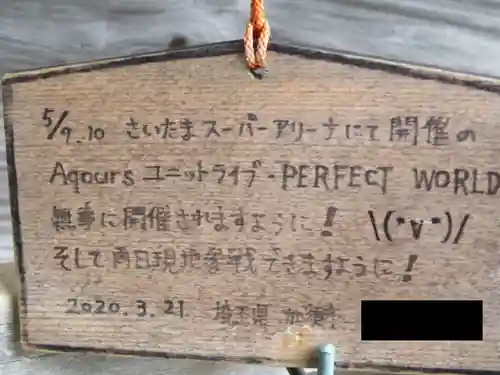 5/9.10 さいたまスーパーアリーナにて開催の
Aqours ユニットライブ・PERFECT WORLD
無事に開催されますように! \(*ˇvˇ*)/
そして両日現地参戦できますように!
2020.3.21 埼玉県